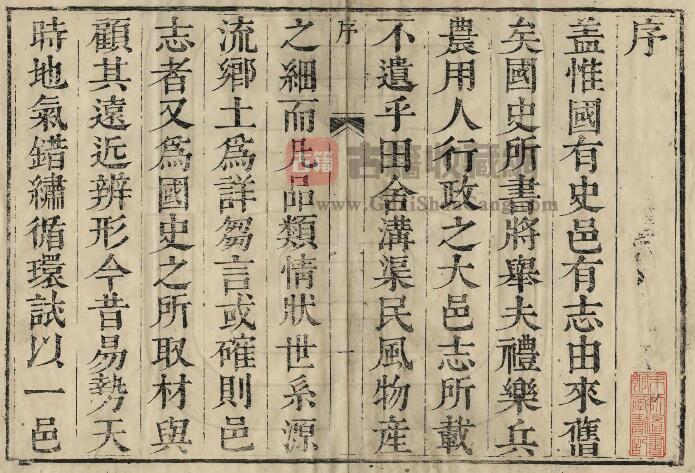 序
蓋惟國有史邑有志由來舊
矣國史所書將舉夫禮樂兵
農用人行政之大邑志所載
不遺乎田舍溝渠民風物産
序
一
之細而凡品類情狀世系源
流鄉土爲詳芻言或確則邑
志者又爲國史之所取材與
顧其遠近辨形今昔易勢天
時地氣錯繡循環試以一邑
古籍
古籍收藏
www.GujiShouCang.com